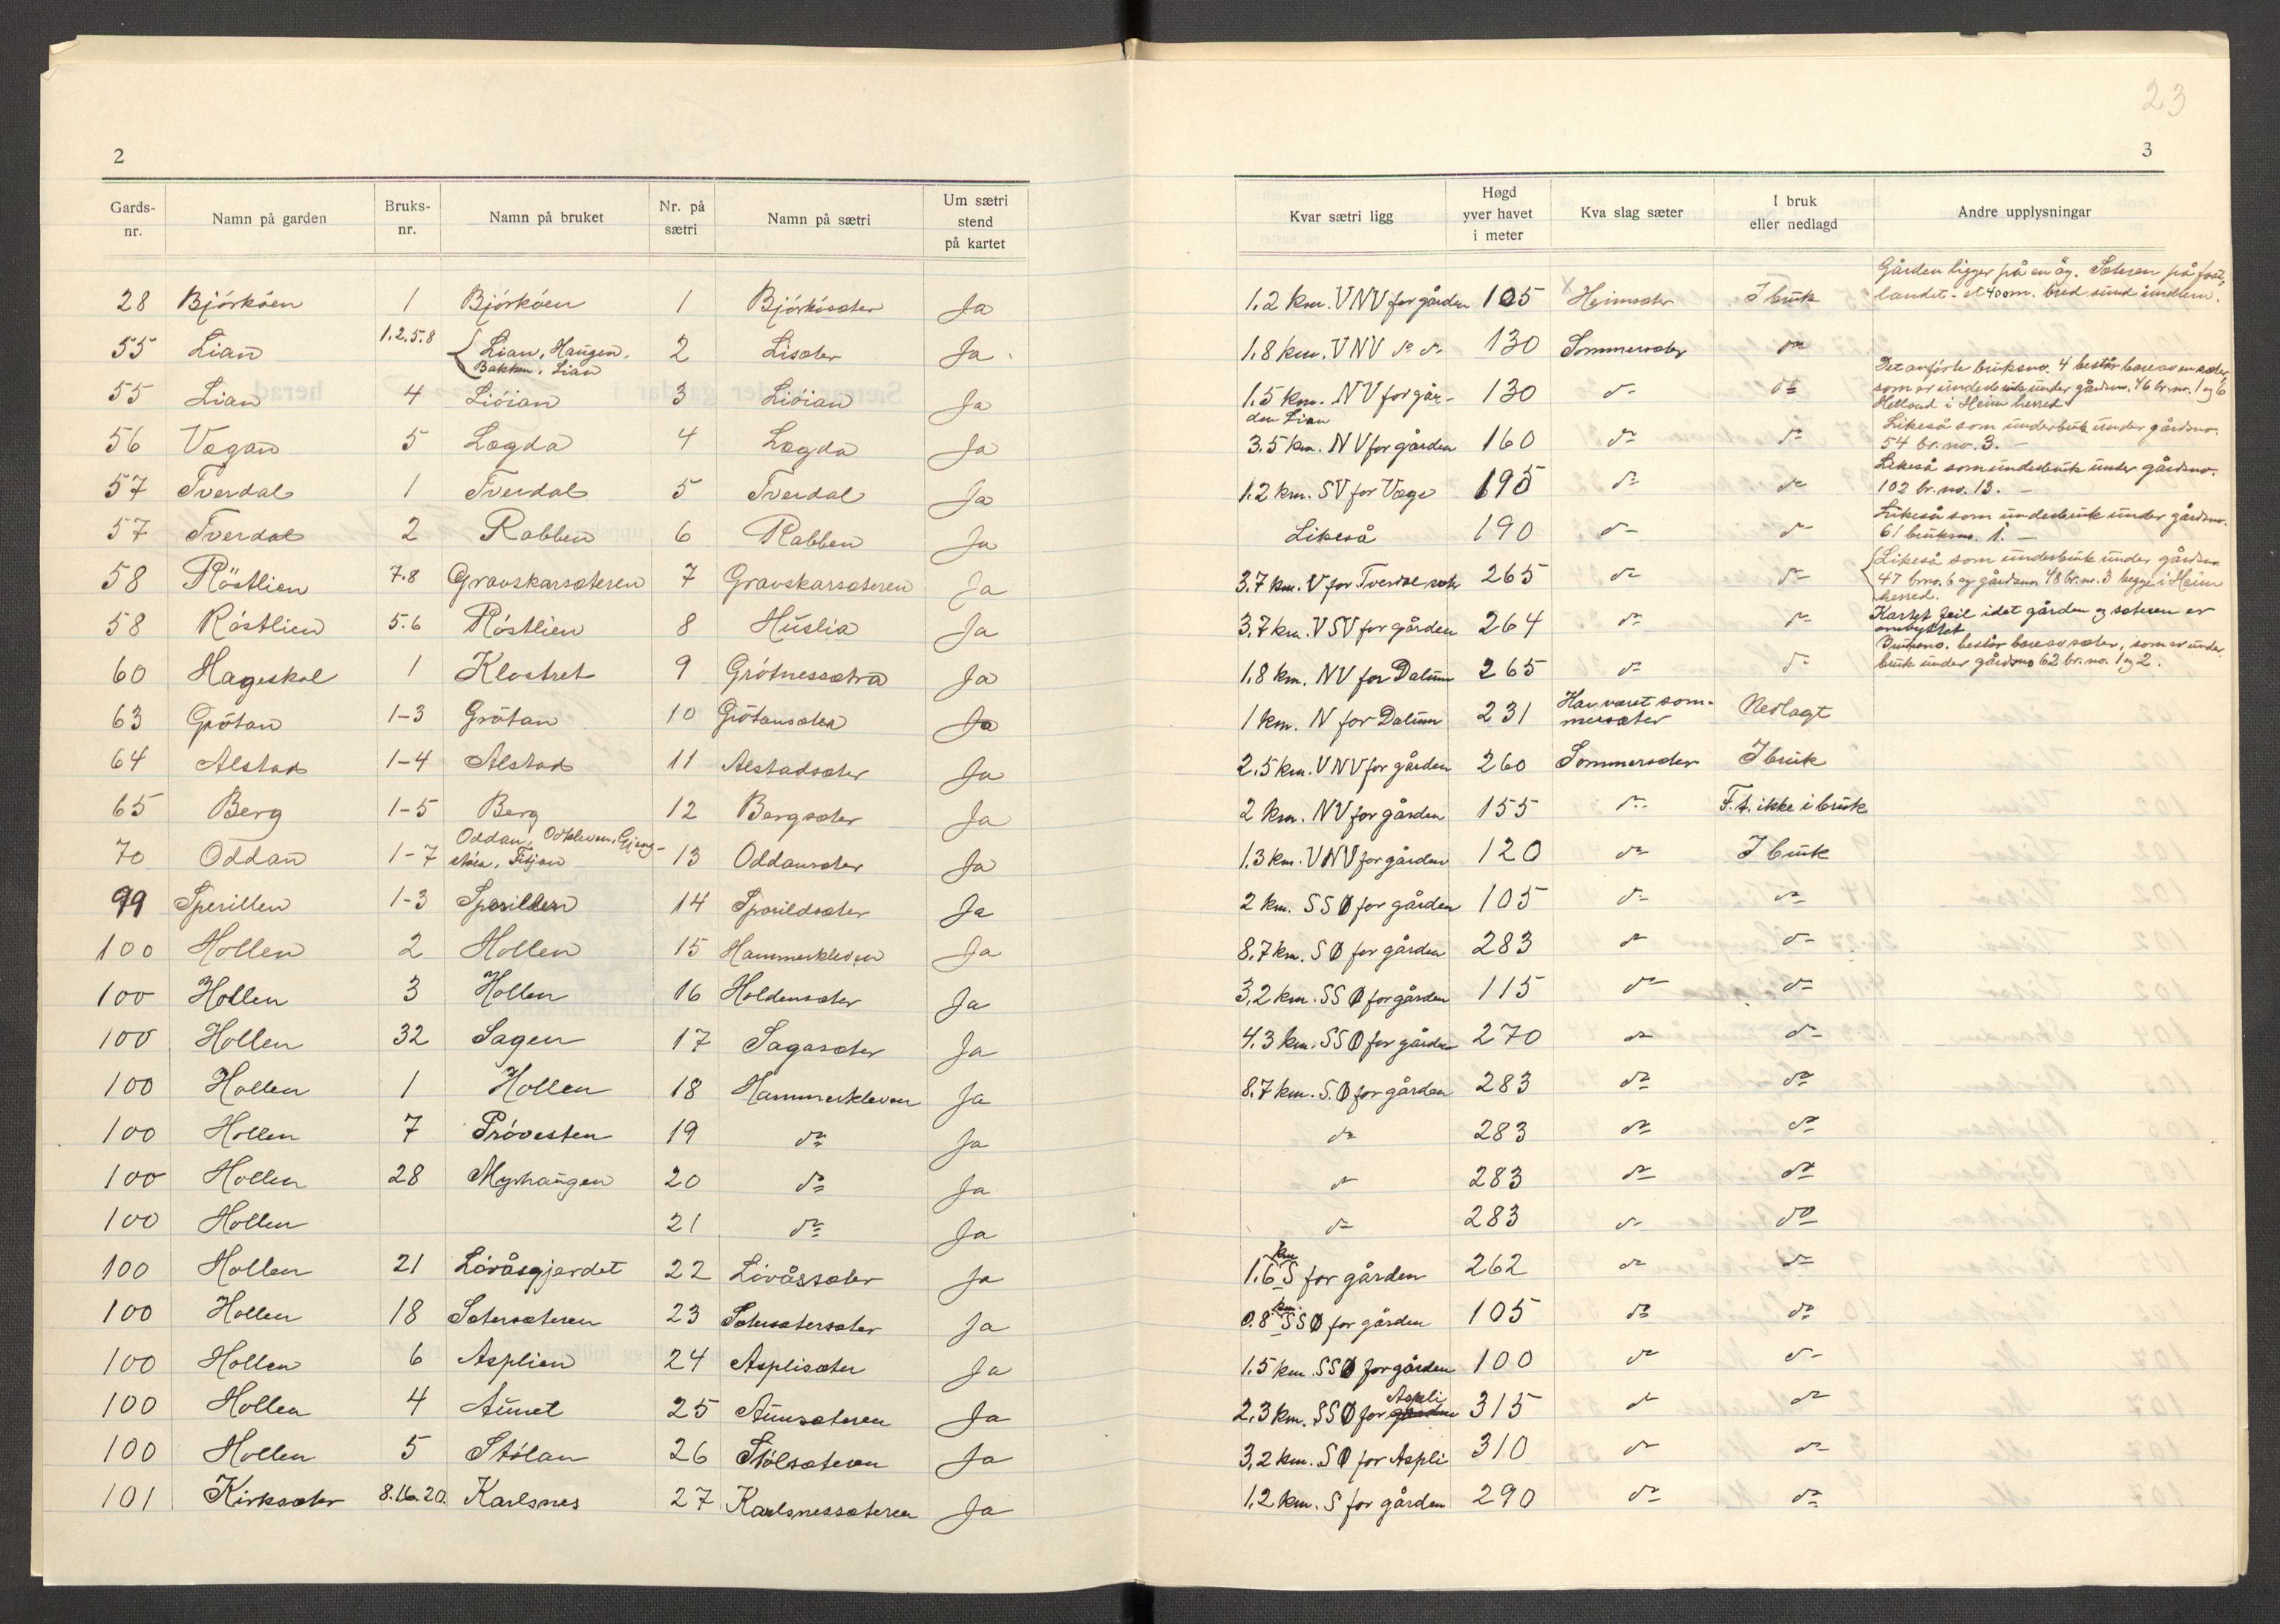 23
2
3
Gards-nr. Namn på garden Bruks-nr. Namn på bruket Nr. på sætri Namn på sætri Um sætri stend på kartet
Kvar sætri ligg Høgd yver havet i meter Kva slag sæter I bruk eller nedlagd Andre upplysningar
28 Bjørkøen 1 Bjørkøen 1 Bjørkøsæter Ja 1.2 km. VNV for gården 105 Heimsæter I bruk Gården ligger på en øy. Sæteren på fastlandet - et 400 m. bred sund imellem.
55 Lian 1.2.5.8 Lian, Haugen, Bakken, Lian 2 Lisæter Ja 1.8 km. VNV do do 130 Sommersæter do
55 Lian 4 Liøian 3 Liøian Ja 1.5 km. NV for gården Lian 130 do do Det anførte bruksno. 4 består bare av en sæter, som er underbruk under gårdsno. 46 br.no. 1 og 6 Helland i Heim herred
56 Vagan 5 Lægda 4 Lægda Ja 3.5 km. NV for gården 160 do do Likeså som underbruk under gårdsno. 54 br.no. 3. -
57 Tverdal 1 Tverdal 5 Tverdal Ja 1.2 km. SV for Væge 195 do do Likeså som underbruk under gårdsno. 102 br.no. 13. -
57 Tverdal 2 Rabben 6 Rabben Ja Likeså 190 do do Likeså som underbruk under gårdsno. 61 bruksno. 1. -
58 Röstlien 7.8 Gravskarsæteren 7 Gravskarsæteren Ja 3.7 km. V for Tverdal sæter 265 do do Likeså som underbruk under gårdsno 47 brno. 6 og gårdsno. 48 br.no. 3 begge i Heim herred.
58 Røstlien 5.6 Røstlien 8 Huslia Ja 3.7 km. VSV for gården 264 do do Kartet feil idet gården og sæteren er ombyttet
60 Hageskal 1 Klostret 9 Grøtnessætra Ja 1.8 km. NV for Dalum 265 do do Bruksno. består bare av sæter, som er underbruk under gårdsno 62 br.no. 1 og 2.
63 Grøtan 1-3 Grøtan 10 Grøtansætra Ja 1 km. N for Dalum 231 Har været sommersæter Nedlagt
64 Alstad 1-4 Alstad 11 Alstadsæter Ja 2.5 km. VNV for gården 260 Sommersæter I bruk
65 Berg 1-5 Berg 12 Bergsæter Ja 2 km. NV for gården 155 do F.t. ikke i bruk
70 Oddan 1-7 Oddan, Oddkleven, Gjengstøen, Fitjan 13 Oddansæter Ja 1.3 km. VNV for gården 120 do I bruk
99 Sperillen 1-3 Sperillen 14 Sporildsæter Ja 2 km. SSØ for gården 105 do do
100 Hollen 2 Hollen 15 Hammerkleven Ja 8.7 km. SØ for gården 283 do do
100 Hollen 3 Hollen 16 Holdensæter Ja 3,2 km. SSØ for gården 115 do do
100 Hollen 32 Sagen 17 Sagasæter Ja 4.3 km. SSØ for gården 270 do do
100 Hollen 1 Hollen 18 Hammerkleven Ja 8.7 km. S.Ø for gården 283 do do
100 Hollen 7 Prøvesten 19 do Ja do 283 do do
100 Hollen 28 Myrhaugen 20 do Ja do 283 do do
100 Hollen 21 do Ja do 283 do do
100 Hollen 21 Løvåsgjerdet 22 Løvåssæter Ja 1.6 km S for gården 262 do do
100 Hollen 18 Sætersæteren 23 Sætersætersæter Ja 0.8 km. SSØ for gården 105 do do
100 Hollen 6 Asplien 24 Asplisæter Ja 1.5 km. SSØ for gården 100 do do
100 Hollen 4 Aunet 25 Aunsæteren Ja 2,3 km. SSØ for gården Aspli 315 do do
100 Hollen 5 Stølan 26 Stølsæteren Ja 3,2 km. SØ for Aspli 310 do do
101 Kirksæter 8.16.20. Karlsnes 27 Karlsnessæteren Ja 1.2 km. S for gården 290 do do